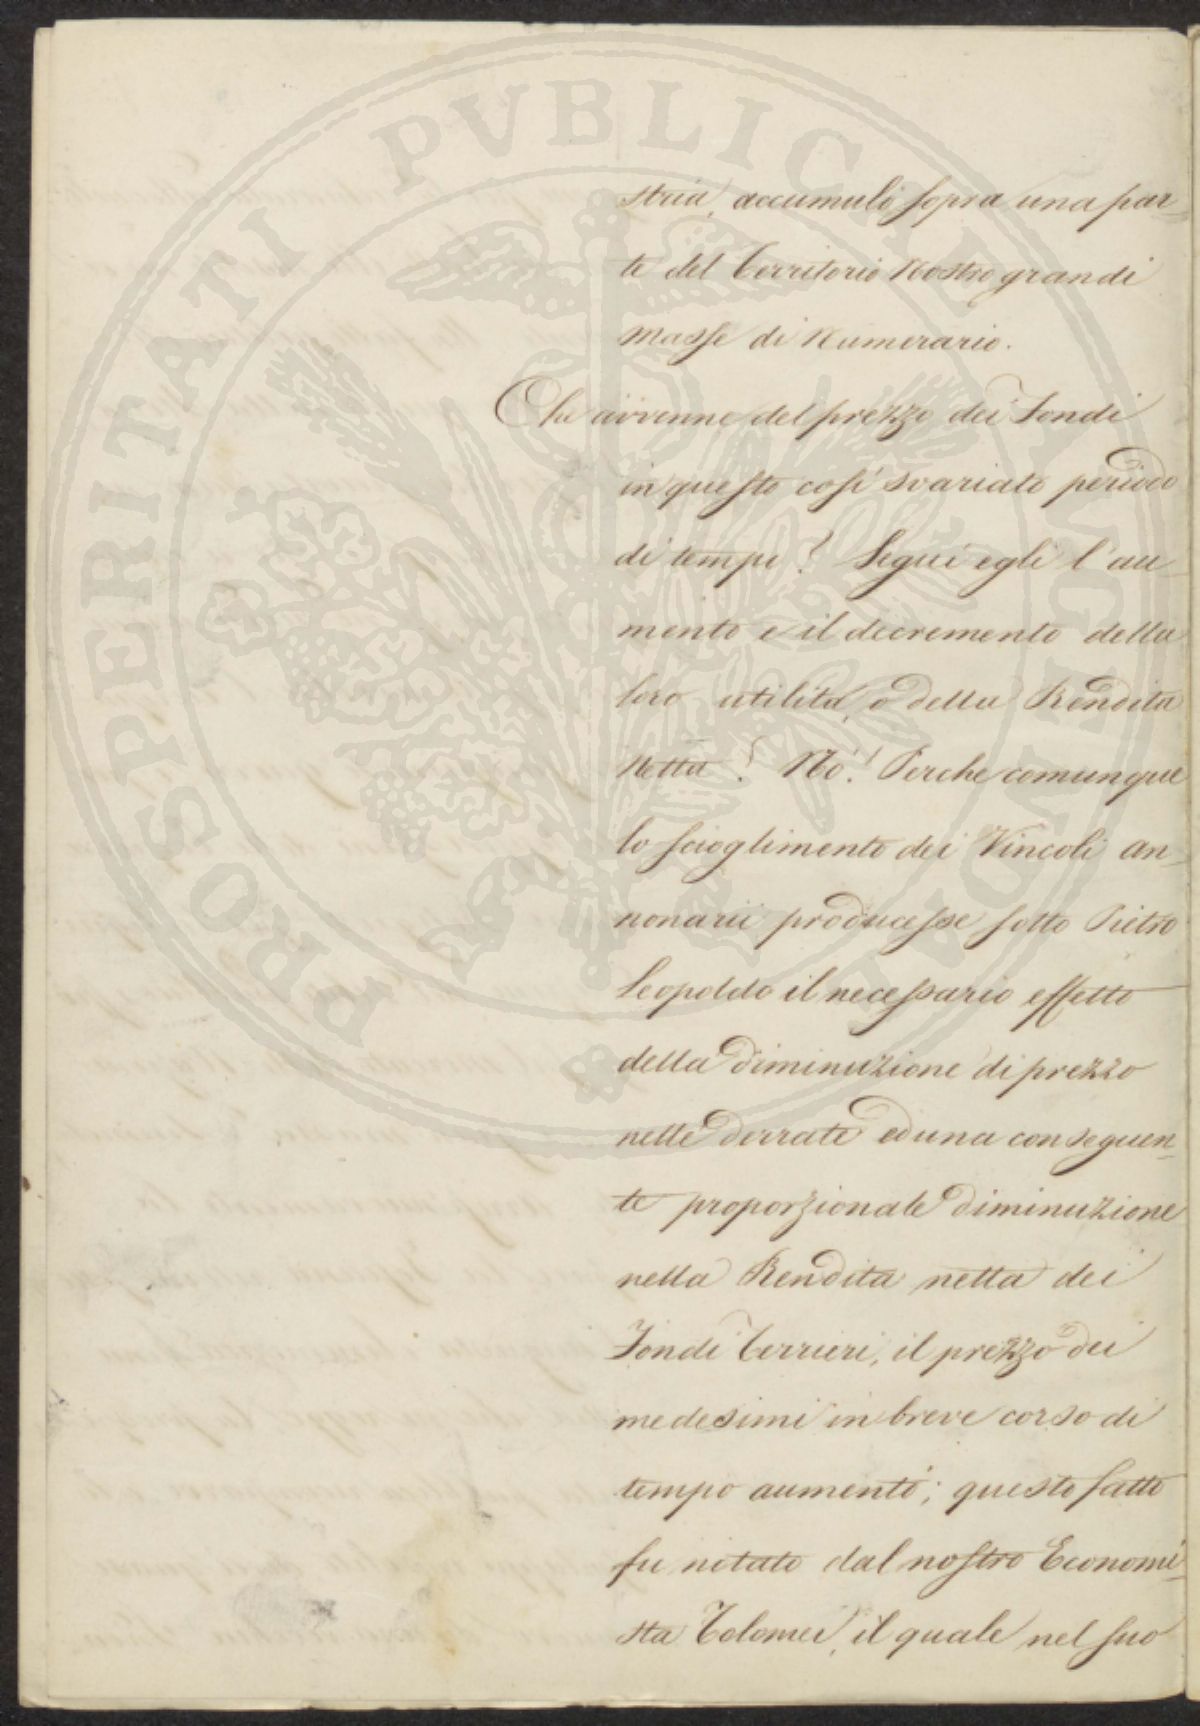 PROSPERITATI PVBLICAE AVGENDAE
stria, accumulò sopra una par-
te del Territorio Nostro grandi
Masse di Numerario.
Che avvenne del prezzo dei Fondi
in questo così svariato periodo
di tempi? Seguì egli l'au-
mento e il decremento della
loro utilità, o della Rendita
Netta? Nò! Perche comunque
lo scioglimento dei Vincoli an-
nonarii producesse sotto Pietro
Leopoldo il necessario effetto
della diminuzione di prezzo
nelle derrate ed una conseguen-
te proporzionale diminuzione
nella Rendita netta dei
Fondi Terrieri, il prezzo dei
medesimi in breve corso di
tempo aumentò; questo fatto
fu notato dal nostro Economi-
sta Tolomei, il quale nel suo